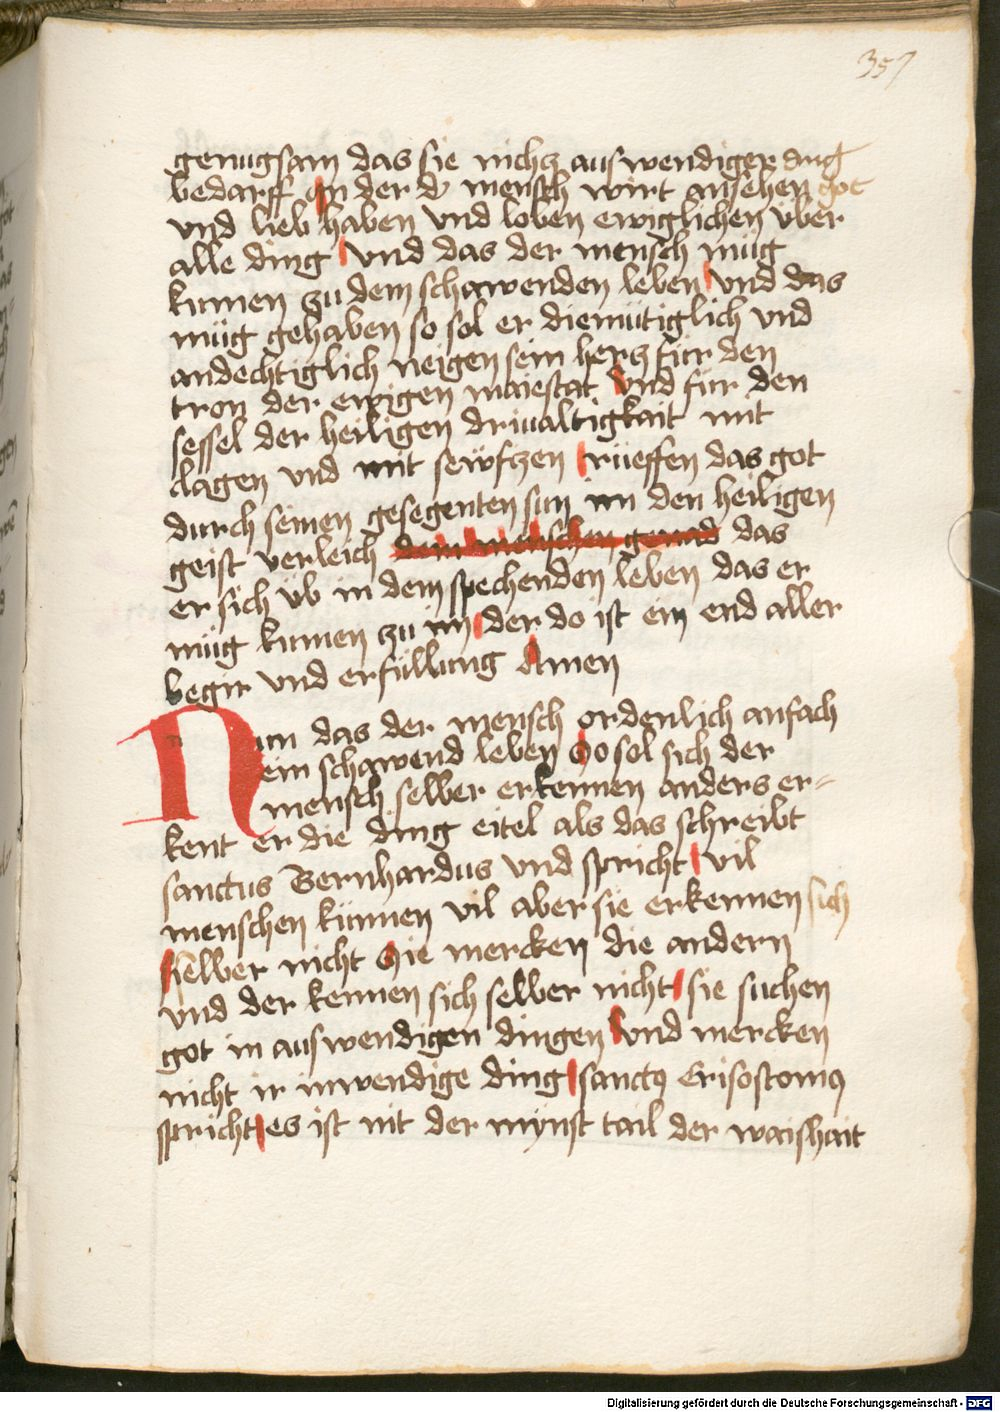 357
genugsam das sie nichcz auswendiger ding
bedarff In der d' mensch wirt ansehen got
vnd lieb haben vnd loben ewiglichen vber
alle ding vnd das der mensch müg
kumen zu dem schawenden leben vnd das
müg gehaben so sol er diemütiglich vnd
andechtiglich neigen sein hercz für den
tron der ewigen maiestat vnd für den
sessel der heiligen driualtigkait mit
clagen vnd mit sewfczen rüeffen das got
durch seinen gesegenten sun im den heiligen
geist verleich dem menschen genad das
er sich vb in dem spechenden leben das er
müg kumen zu im der do ist ein end aller
begir vnd erfüllung Amen
Nun das der mensch ordenlich anfach
ein schawend leben So sol sich der
mensch selber erkennen anders er-
kent er die ding eitel als das schreibt
sanctus Bernhardus vnd spricht vil
menschen künnen vil aber sie erkennen sich
selber nicht Sie mercken die andern
vnd der kennen sich selber nicht sie suchen
got in auswendigen dingen vnd mercken
nicht ir inwendige ding sanctꝰ Crisostomꝰ
spricht es ist nit der mynst tail der waishait
Digitalisierung gefördert durch die Deutsche Forschungsgemeinschaft - DFG